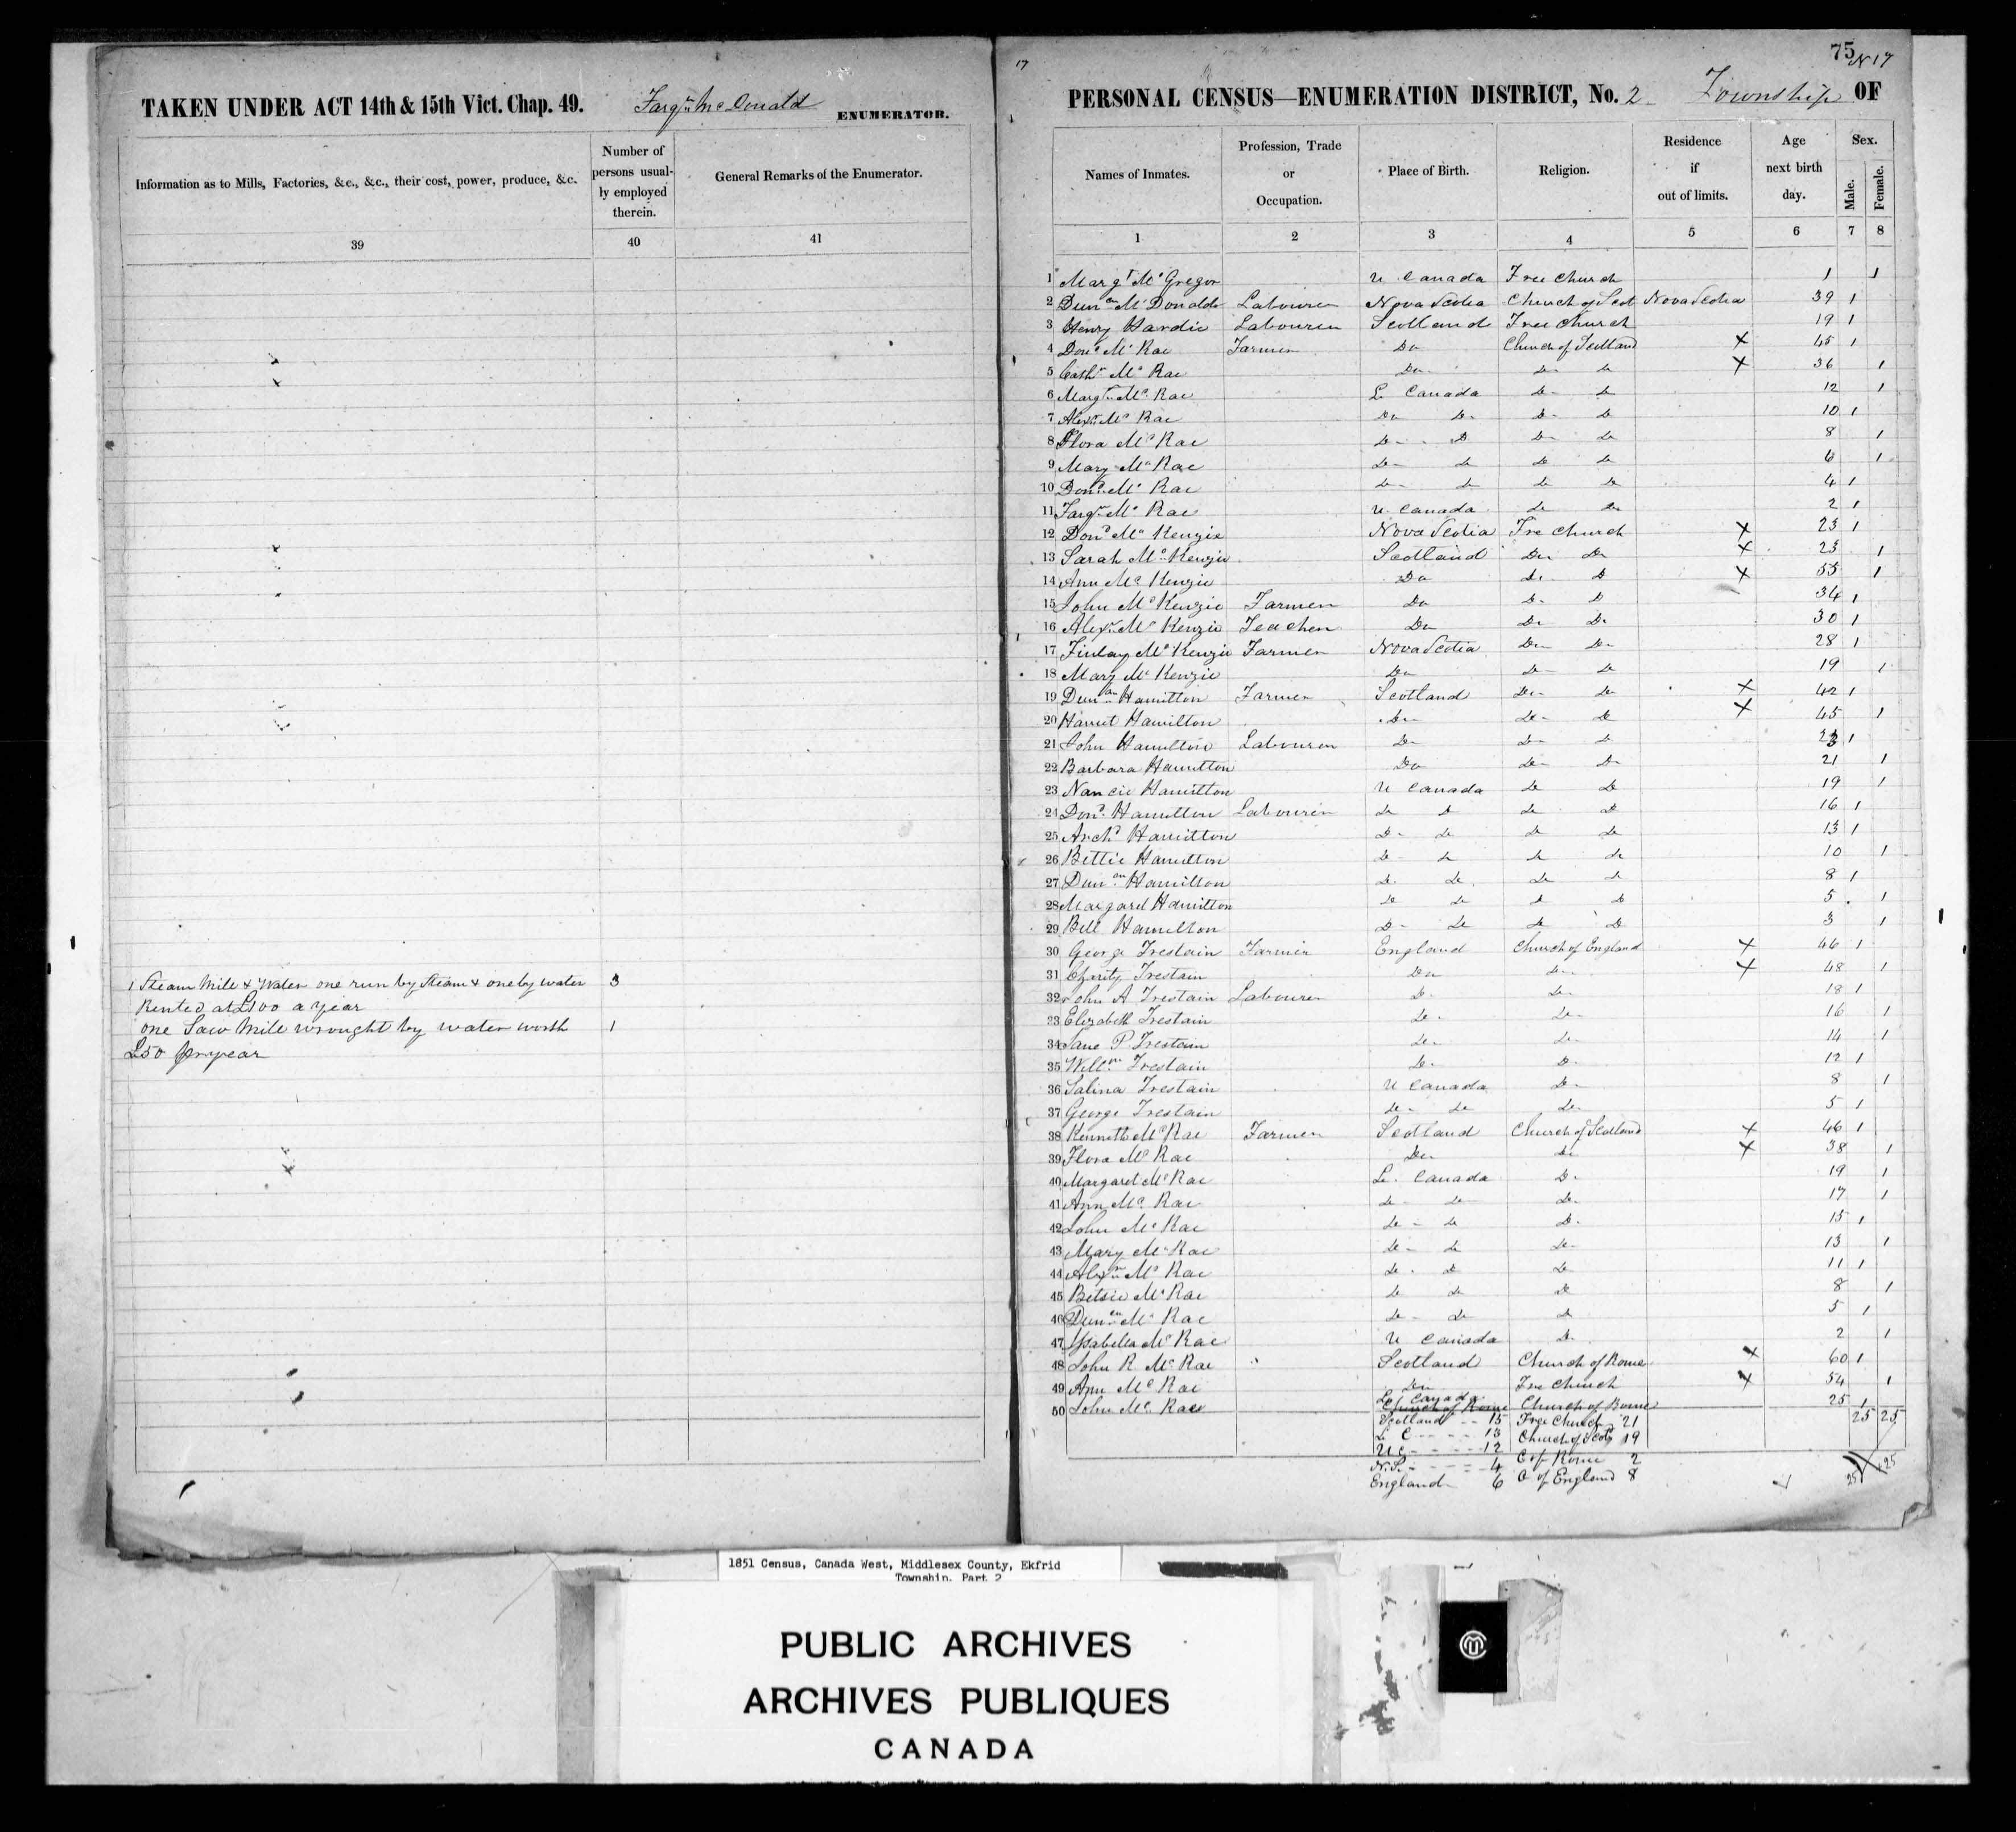 TAKEN UNDER ACT 14th & 15th Vict. Chap. 49. Farqr McDonald ENUMERATOR.
Information as to Mills, Factories, &c., &c., their cost, power, produce, &c.
Number of persons usual-ly employed therein.
General Remarks of the Enumerator.
39 40 41
1 Steam Mill & Water one run by Steam & one by water 3
Rented at £100 a year
one Saw Mill wrought by water worth 1
£50 per year
17
75 N 17
PERSONAL CENSUS—ENUMERATION DISTRICT, No. 2 Township OF
Names of Inmates.
Profession, Trade or Occupation.
Place of Birth.
Religion.
Residence if out of limits.
Age next birth day.
Sex.
Male. Female.
1 2 3 4 5 6 7 8
1 Margt Mc Gregor U Canada Free Church 1 1
2 Duncan Mc Donald Labourer Nova Scotia Church of Scot Nova Scotia 39 1
3 Henry Hardie Labourer Scotland Free Church 19 1
4 Dond Mc Rae Farmer Do Church of Scotland X 45 1
5 Cathn Mc Rae Do Do Do X 36 1
6 Margt Mc Rae L Canada Do Do 12 1
7 Alexr Mc Rae Do Do Do Do 10 1
8 Flora Mc Rae Do Do Do Do 8 1
9 Mary Mc Rae Do Do Do Do 6 1
10 Dond Mc Rae Do Do Do Do 4 1
11 Farqr Mc Rae U Canada Do Do 2 1
12 Dond Mc Kenzie Nova Scotia Fre Church X 23 1
13 Sarah Mc Kenzie Scotland Do Do X 23 1
14 Ann Mc Kenzie Do Do Do X 55 1
15 John Mc Kenzie Farmer Do Do Do 34 1
16 Alexr Mc Kenzie Teacher Do Do Do 30 1
17 Finlay Mc Kenzie Farmer Nova Scotia Do Do 28 1
18 Mary Mc Kenzie Do Do Do 19 1
19 Duncan Hamilton Farmer Scotland Do Do X 42 1
20 Harriet Hamilton Do Do Do X 45 1
21 John Hamilton Labourer Do Do Do 23 1
22 Barbara Hamilton Do Do Do 21 1
23 Nancie Hamilton U Canada Do Do 19 1
24 Dond Hamilton Labourer Do Do Do Do 16 1
25 Archd Hamilton Do Do Do Do 13 1
26 Bettie Hamilton Do Do Do Do 10 1
27 Duncan Hamilton Do Do Do Do 8 1
28 Margaret Hamilton Do Do Do Do 5 1
29 Bell Hamilton Do Do Do Do 3 1
30 George Trestain Farmer England Church of England X 46 1
31 Charity Trestain Do Do X 48 1
32 John A Trestain Labourer Do Do 18 1
23 Elizabeth Trestain Do Do 16 1
34 Jane P Trestain Do Do 14 1
35 Willm Trestain Do Do 12 1
36 Salina Trestain U Canada Do 8 1
37 George Trestain Do Do Do 5 1
38 Kenneth Mc Rae Farmer Scotland Church of Scotland X 46 1
39 Flora Mc Rae Do Do X 38 1
40 Margaret Mc Rae L. Canada Do 19 1
41 Ann Mc Rae Do Do Do 17 1
42 John Mc Rae Do Do Do 15 1
43 Mary Mc Rae Do Do Do 13 1
44 Alexr Mc Rae Do Do Do 11 1
45 Betsie Mc Rae Do Do Do 8 1
46 Duncan Mc Rae Do Do Do 5 1
47 Ysabella Mc Rae U Canada Do 2 1
48 John R. Mc Rae Scotland Church of Rome X 60 1
49 Ann Mc Rae Do Fre Church X 54 1
50 John Mc Rae L Canada Church of Rome Church of Rome 25 1
Scotland 15 Free Church 21 25 25
L C 13 Church of Scot 19
U C 12 C of Rome 2
N.S. 4 C of England 8 25 25
England 6
1851 Census, Canada West, Middlesex County, Ekfrid
Township, Part 2
PUBLIC ARCHIVES
ARCHIVES PUBLIQUES
CANADA